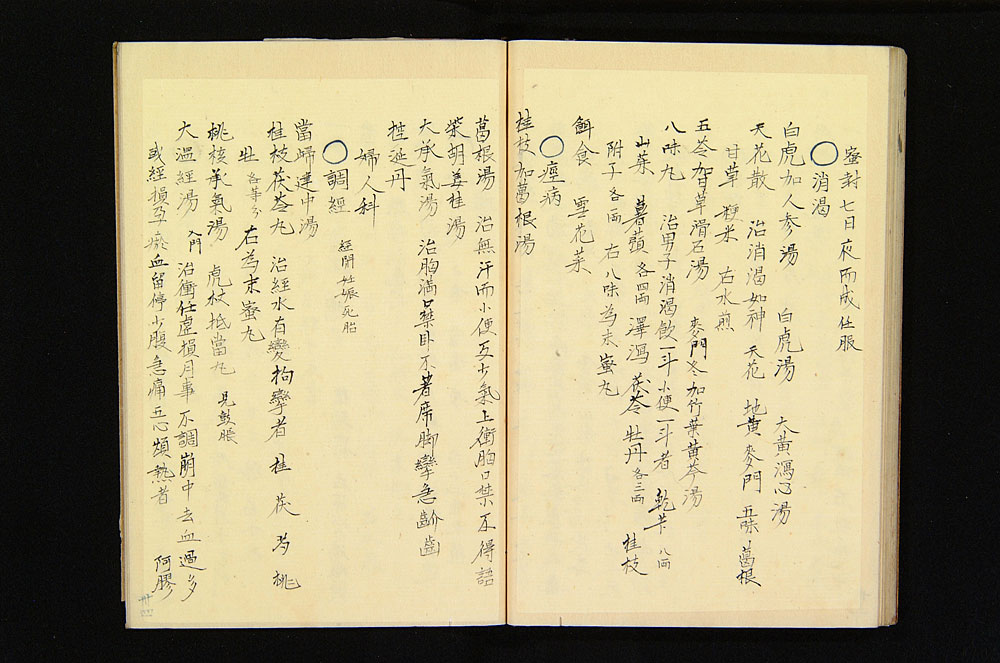 蜜封七日夜而成任服
〇消渇
白虎加人参湯　白虎湯　大黄瀉心湯
天花散　治消渇如神　天花　地黄　麦門　五味　葛根
甘草　粳米　右水煎
五苓加甘草滑石湯　麥門冬加竹葉黄芩湯
八味丸　治男子消渇飲一斗小便一斗者　乾苄 八両
山茱　薯蕷 各四両　澤瀉　茯苓　牡丹 各三両　桂枝
附子 各一両　右八味為末蜜丸
餌食　雪花菜
〇痙病
桂枝加葛根湯
葛根湯　治無汗而小便反少氣上衝胸口禁不得語
柴胡姜桂湯
大承氣湯　治胸満口禁臥不著席脚攣急齘齒
控延丹
婦人科
〇調経　経閉 妊娠 死胎
當帰建中湯
桂枝茯苓丸　治経水有變拘攣者　桂　茯　芍　桃
牡 各等分　右為末蜜丸
桃核承氣湯　虎杖抵當丸 見鼓脹
大温経湯 入門　治衝任虚損月事不調崩中去血過多
或経損孕瘀血留停少腹急痛五心煩熱者　阿膠